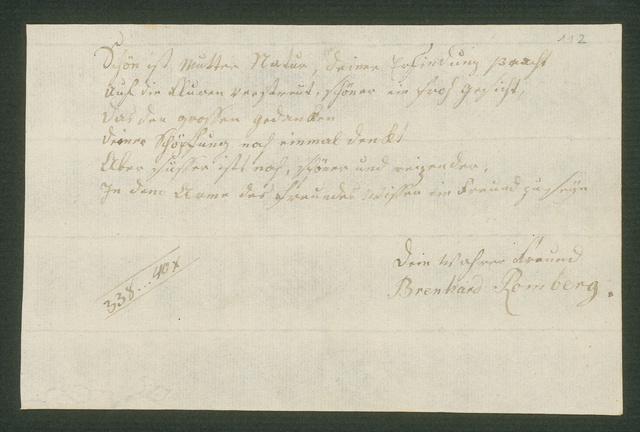 112
Schön ist, Mutter Natur, deiner Erfindung pracht
auf die Fluren verstreut, schöner ein froh gesicht,
das den grossen gedanken
deiner Schöpfung noch einmal denkt
Aber süsser ists noch, schöner und reizender,
In dem Arme des Freundes wissen ein Freund zu seÿn
Dein wahrer Freund
Brenhard Romberg.
338...40x